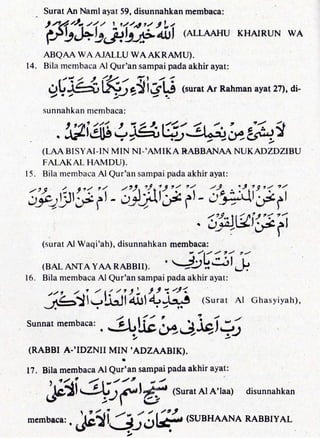 Surat An Naml ayat 59, disunnahkan membaca:
اَللهُ خَيْرٌ وَأَبْقَى وَأَجَلُّ وَأَكْرَمُ (ALLAAHU KHAIRUN WA
ABQAA WA AJALLU WA AKRAMU).
14. Bila membaca Al Qur'an sampai pada akhir ayat:
فَبِأَيِّ آلَاءِ رَبِّكُمَا تُكَذِّبَانِ (surat Ar Rahman ayat 27), di-
sunnahkan membaca:
لَا بِشَيْءٍ مِنْ نِعَمِكَ رَبَّنَا نُكَذِّبُ فَلَكَ الْحَمْدُ .
(LAA BISYAI-IN MIN NI-'AMIKA RABBANAA NUKADZDZIBU
FALAKAL HAMDU).
15. Bila membaca Al Qur'an sampai pada akhir ayat:
أَمْ نَحْنُ الْخَالِقُوْنَ - أَمْ نَحْنُ الْمُنْزِلُوْنَ - أَمْ نَحْنُ الزَّارِعُوْنَ
أَمْ نَحْنُ الْمُنْشِئُوْنَ .
(surat Al Waqi'ah), disunnahkan membaca:
(BAL ANTA YAA RABBII). بَلْ أَنْتَ يَارَبِّيْ .
16. Bila membaca Al Qur'an sampai pada akhir ayat:
فَيُعَذِّبُهُ اللهُ الْعَذَابَ الْأَكْبَرَ (Surat Al Ghasyiyah),
Sunnat membaca: رَبِّ أَعِذْنِيْ مِنْ عَذَابِكَ .
(RABBI A-'IDZNII MIN 'ADZAABIK).
17. Bila membaca Al Qur'an sampai pada akhir ayat:
سَبِّحِ اسْمَ رَبِّكَ الْأَعْلَى (Surat Al A'laa) disunnahkan
membaca: سُبْحَانَ رَبِّيَ الْأَعْلَى . (SUBHAANA RABBIYAL